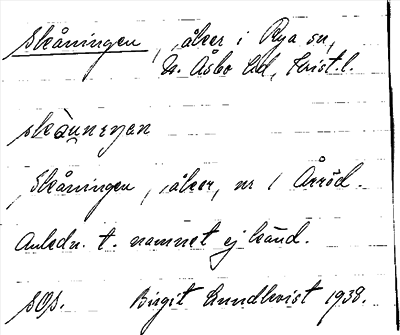 Skåningen, åker i Rya sn,
N. Åsbo hd, Krist.l.
Skåningen, åker, nr 1 Årröd.
Anledn. t. namnet ej känd.
sgs. Birgit Lundkvist 1938.